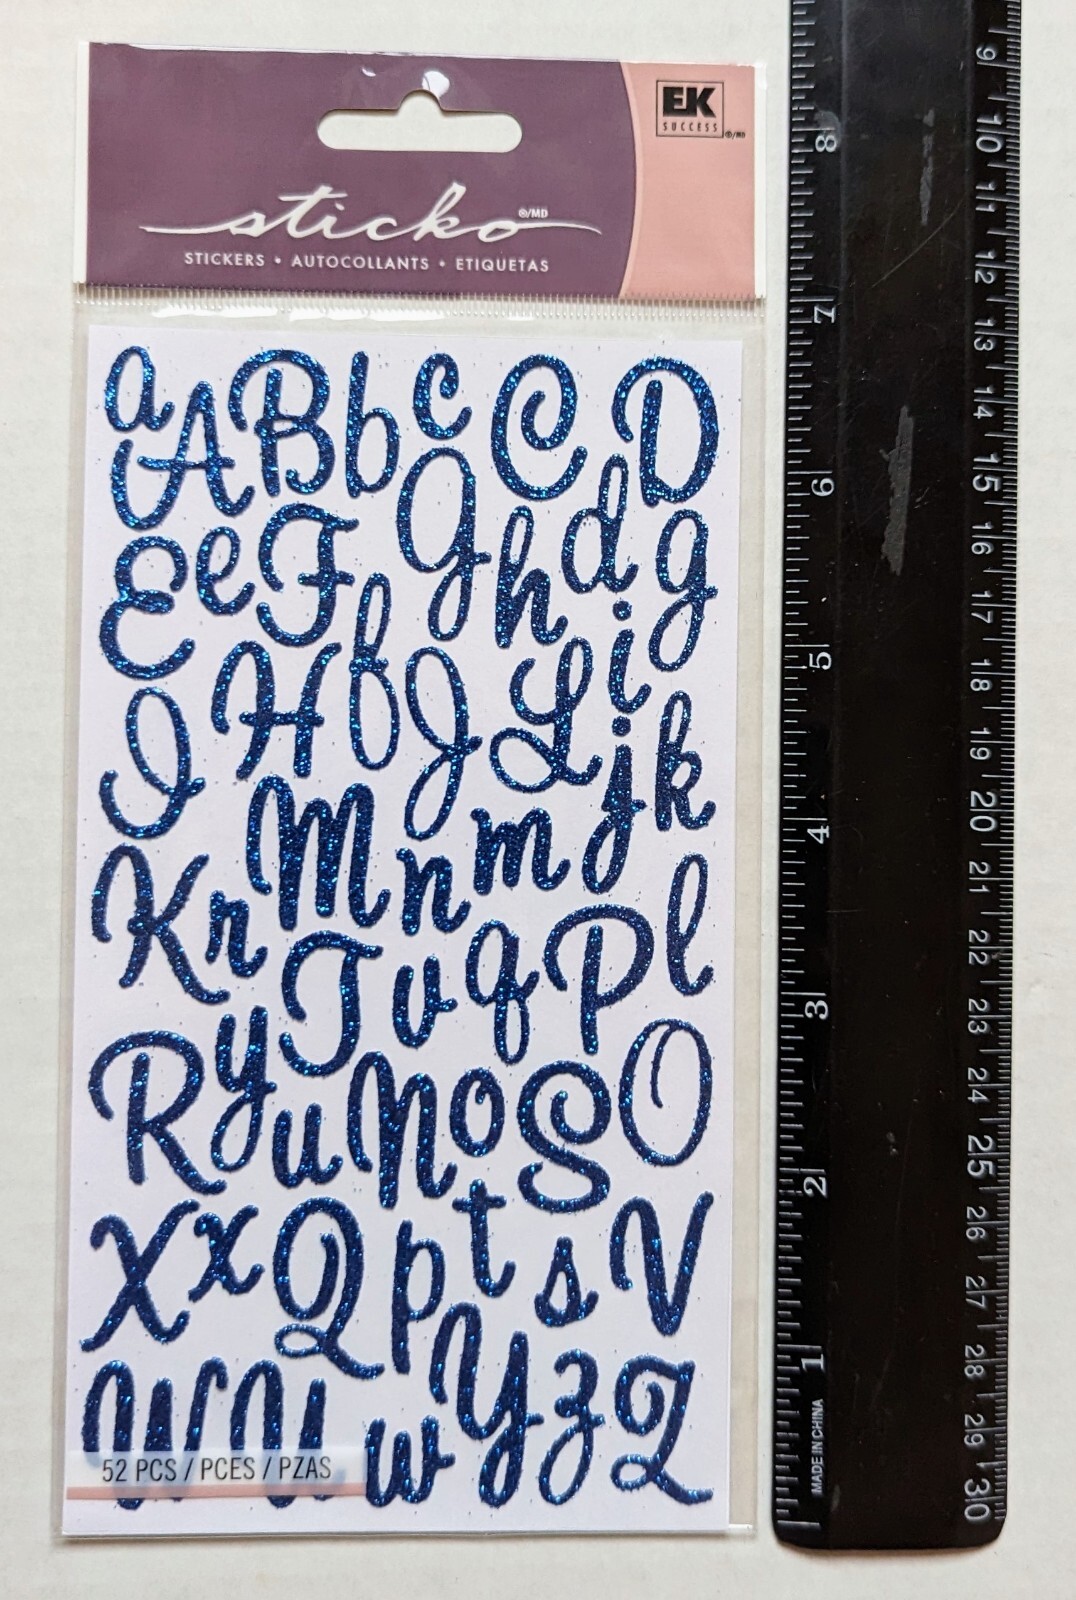 EK
SUCCESS ®/MD
sticko ®/MD
STICKERS • AUTOCOLLANTS • ETIQUETAS
a A B b c C D
E e F G h d g
I H f J L i j k
K r M n m l
T v q P
R y u N o S O
X x Q p t s V
W U w Y z Z
52 PCS / PCES / PZAS
8
7
6
5
4
3
2
1
MADE IN CHINA
9
10
11
12
13
14
15
16
17
18
19
20
21
22
23
24
25
26
27
28
29
30